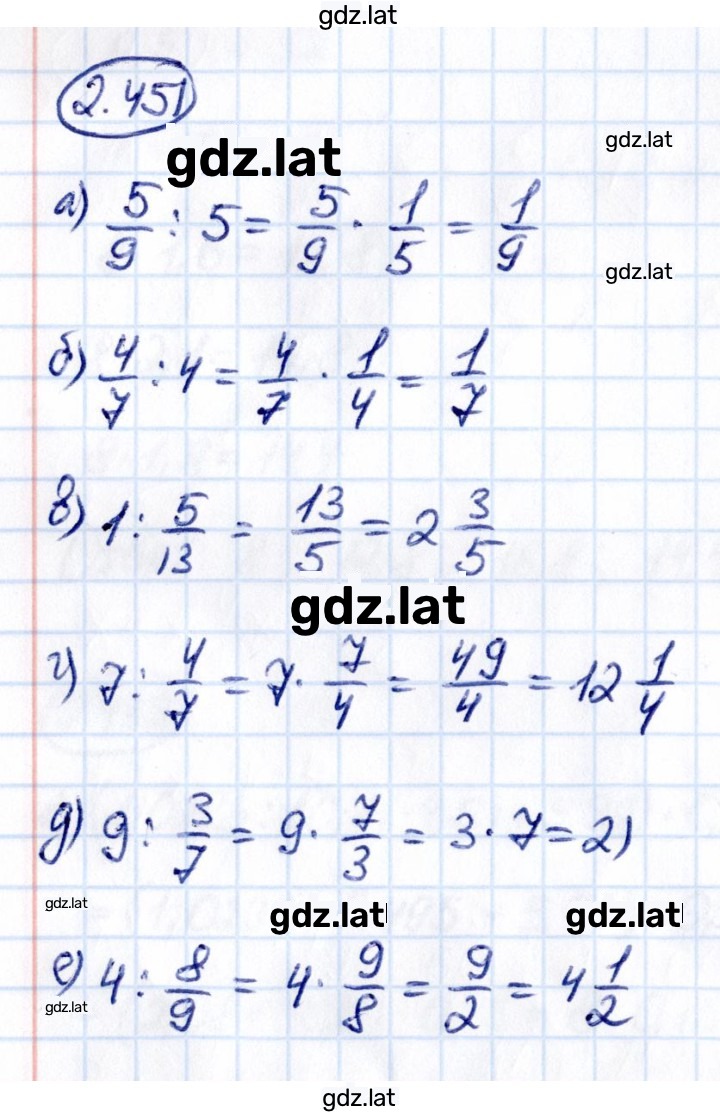 gdz.lat
2.451
gdz.lat
gdz.lat
а) 5/9 : 5 = 5/9 · 1/5 = 1/9
gdz.lat
б) 4/7 : 4 = 4/7 · 1/4 = 1/7
в) 1 : 5/13 = 13/5 = 2 3/5
gdz.lat
г) 7 : 4/7 = 7 · 7/4 = 49/4 = 12 1/4
д) 9 : 3/7 = 9 · 7/3 = 3 · 7 = 21
gdz.lat
gdz.lat
gdz.lat
е) 4 : 8/9 = 4 · 9/8 = 9/2 = 4 1/2
gdz.lat
gdz.lat